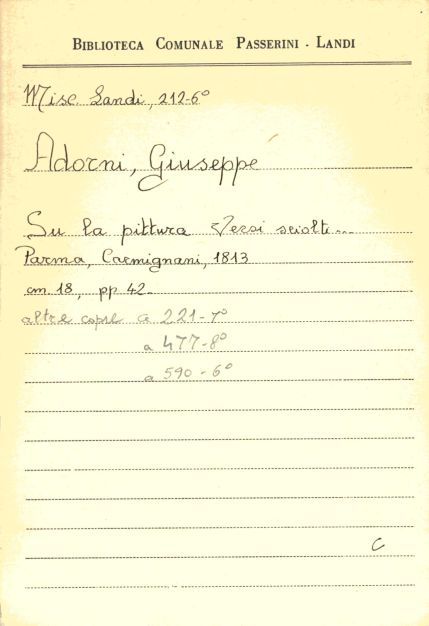 BIBLIOTECA COMUNALE PASSERINI - LANDI
Misc. Landi, 212-6°
Adorni, Giuseppe
Su la pittura Versi sciolti...
Parma, Carmignani, 1813
cm 18, pp 42.
altre copie a 221-7°
a 477-8°
a 590-6°
C